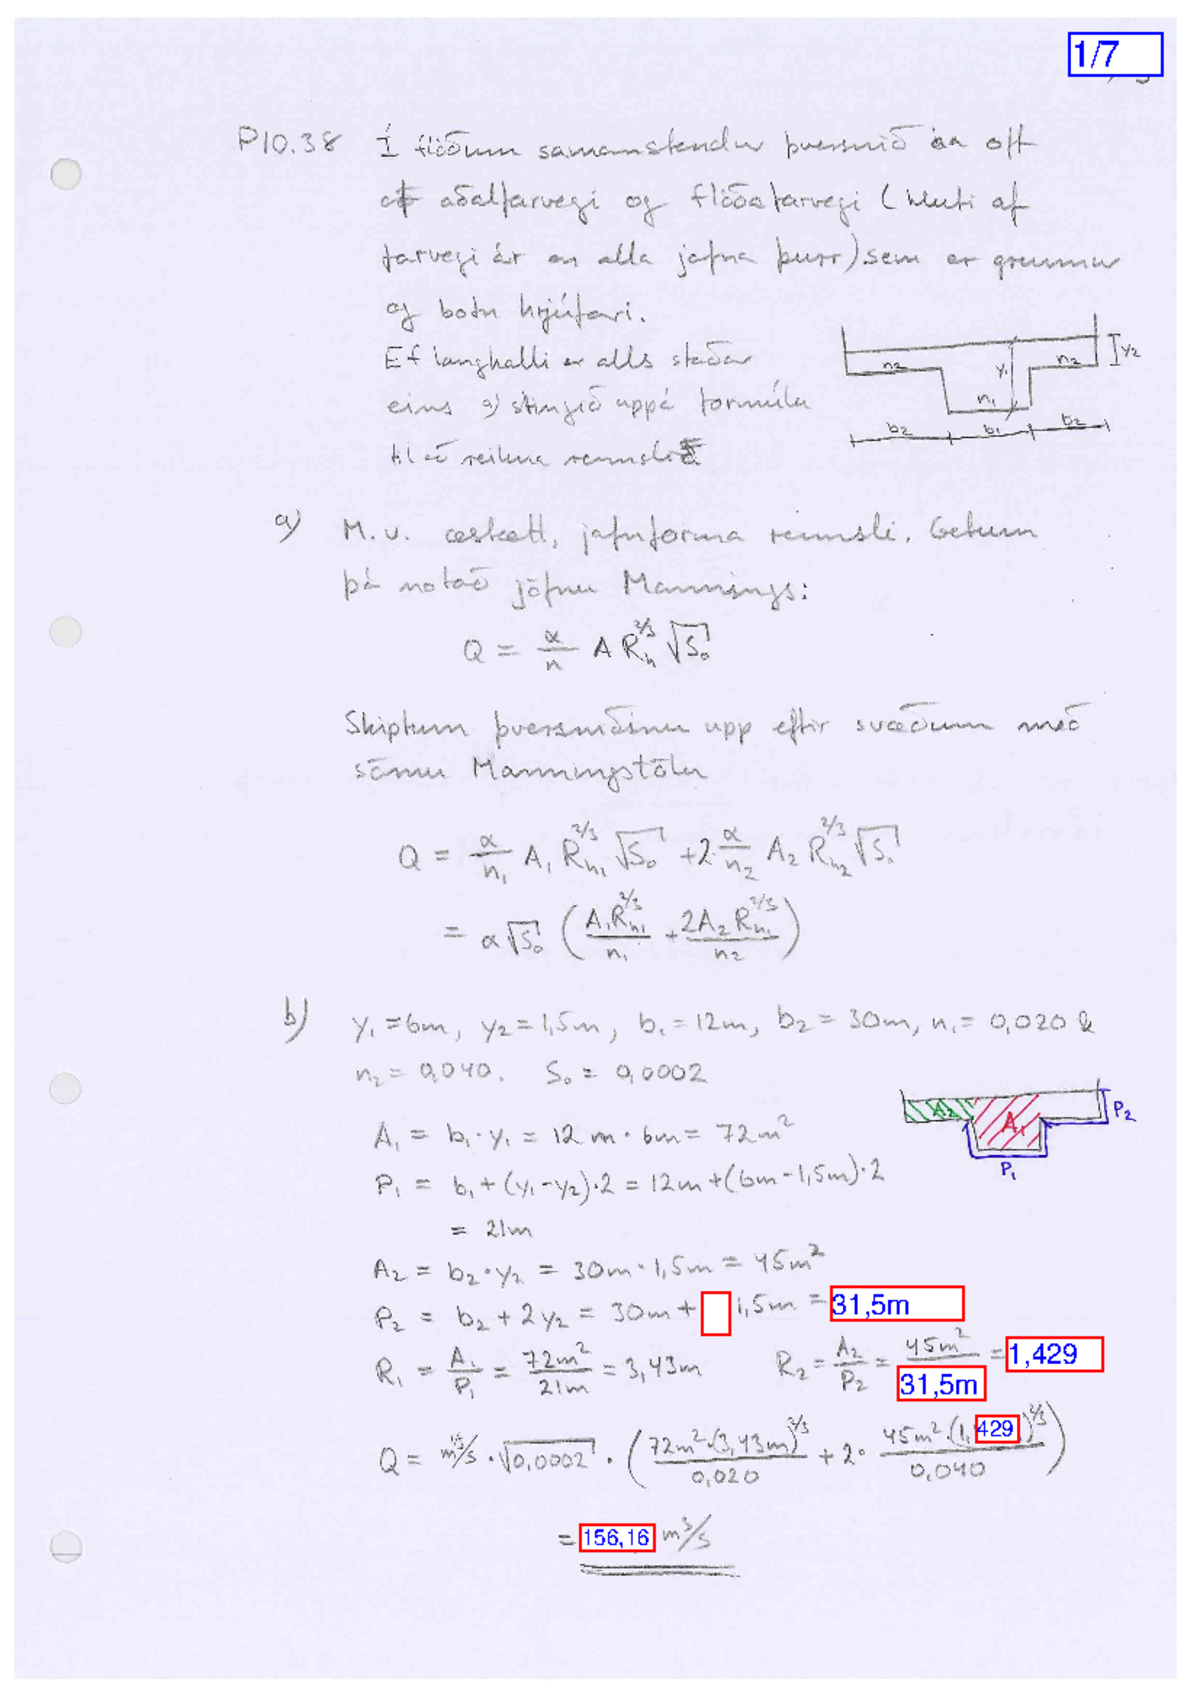 1/7
P10.38 Í flóðum samanstendur þversnið áa oft
af aðalfarvegi og flóðafarvegi (hluti af
farvegi ár en alla jafna þurr) sem er grunnur
og botn hrjúfari.
Ef langhalli er alls staðar
eins a) stingið uppá formúlu
til að reikna rennslið
n₂ y₁ n₂ y₂
n₁
b₂ b₁ b₂
a) M.v. æstætt, jafnforma rennsli. Getum
þá notað jöfnu Mannings:
Q = α/n A Rₕ^2/3 √S₀
Skiptum þversniðinu upp eftir svæðum með
sömu Manningstölu
Q = α/n₁ A₁ Rₕ₁^2/3 √S₀ + 2 α/n₂ A₂ Rₕ₂^2/3 √S₀
= α√S₀ (A₁Rₕ₁^2/3/n₁ + 2A₂Rₕ₂^2/3/n₂)
b) y₁ = 6m, y₂ = 1,5m, b₁ = 12m, b₂ = 30m, n₁ = 0,020 &
n₂ = 0,040. S₀ = 0,0002
A₂ A₁ P₂
P₁
A₁ = b₁·y₁ = 12 m · 6m = 72m²
P₁ = b₁ + (y₁-y₂)·2 = 12m + (6m-1,5m)·2
= 21m
A₂ = b₂·y₂ = 30m · 1,5m = 45m²
P₂ = b₂ + 2y₂ = 30m + 1,5m = 31,5m
R₁ = A₁/P₁ = 72m²/21m = 3,43m R₂ = A₂/P₂ = 45m²/31,5m = 1,429
Q = m^1/3/s · √0,0002 · (72m²·(3,43m)^2/3/0,020 + 2· 45m²·(1,429)^2/3/0,040)
= 156,16 m³/s